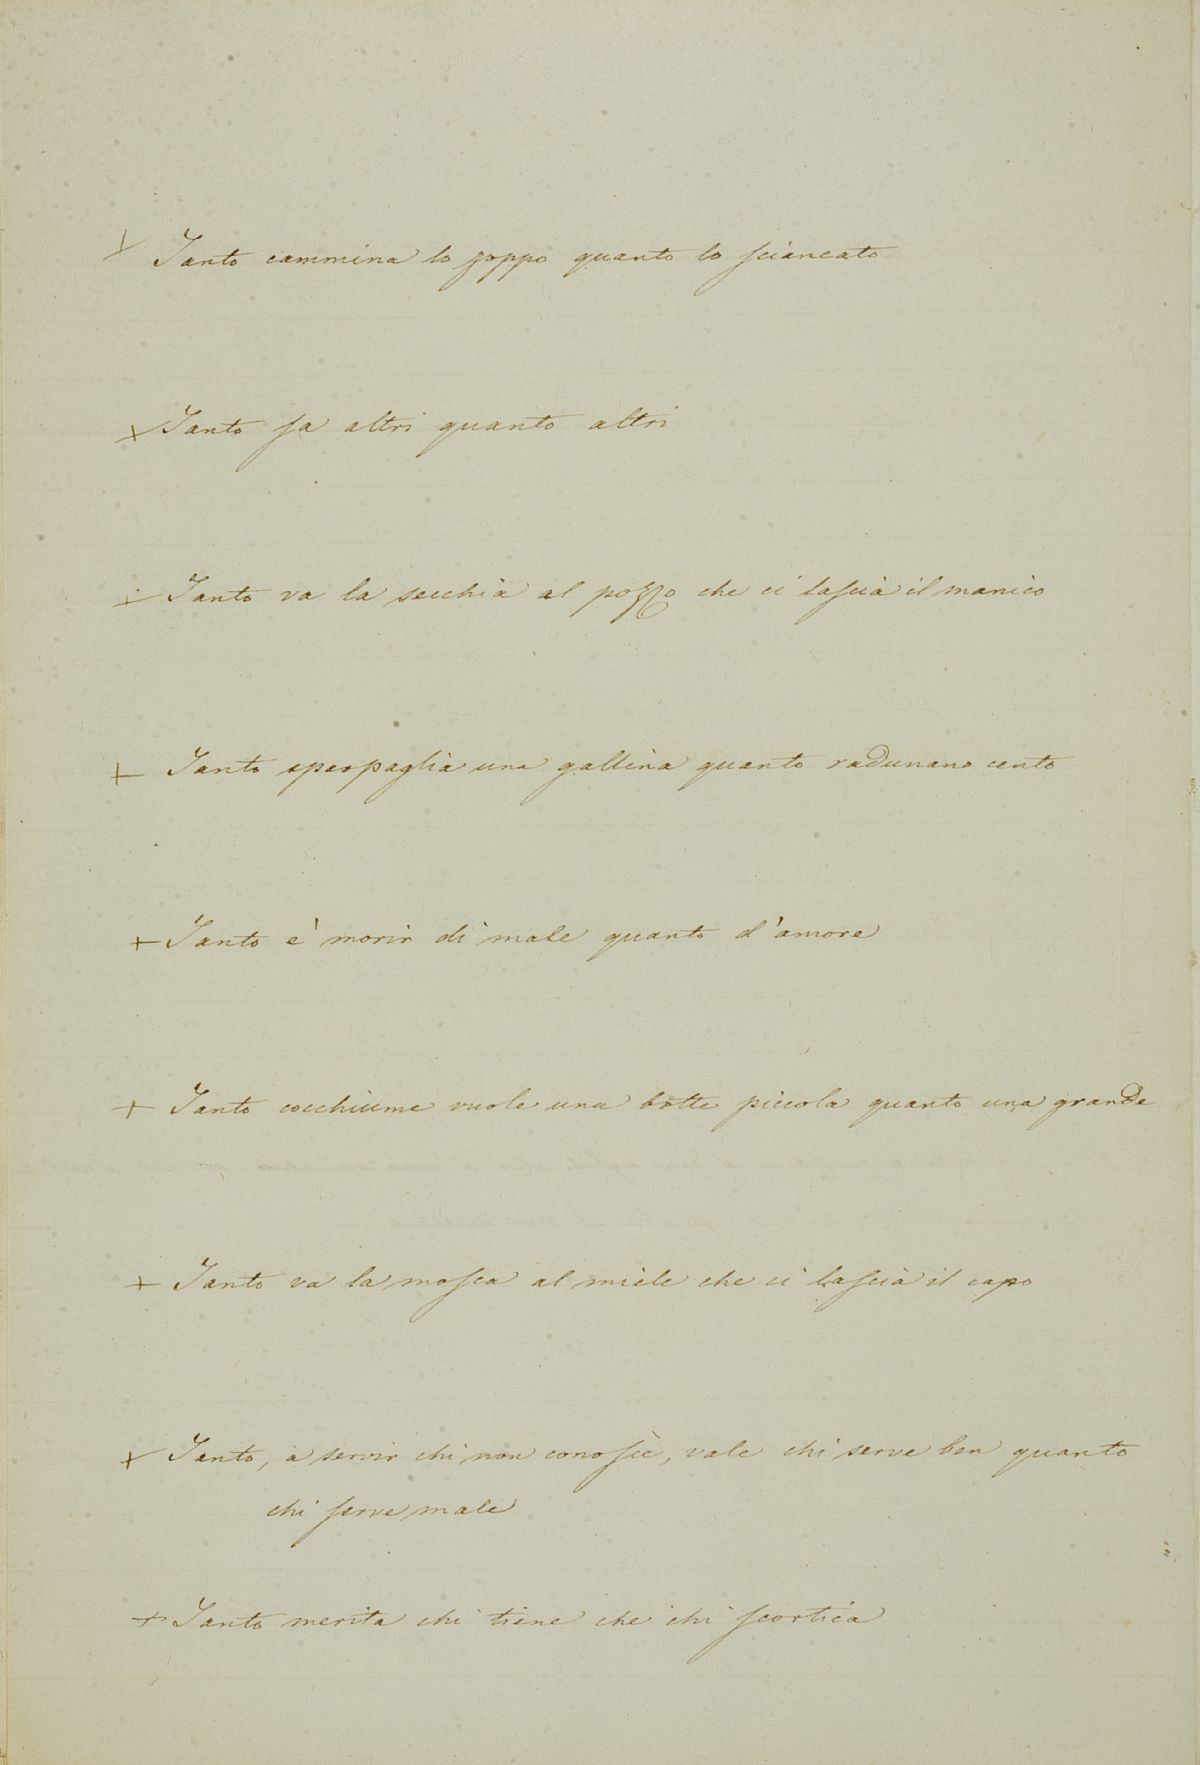 + Tanto cammina lo zoppo quanto lo sciancato
+ Tanto sa altri quanto altri
+ Tanto va la secchia al pozzo che ci lascia il manico
+ Tanto sperpaglia una gallina quanto radunano cento
+ Tanto è morir di male quanto d'amore
+ Tanto cocchiume vuole una botte piccola quanto una grande
+ Tanto va la mosca al miele che ci lascia il capo
+ Tanto, a servir chi non conosce, vale chi serve ben quanto
chi serve male
+ Tanto merita chi tiene che chi scortica